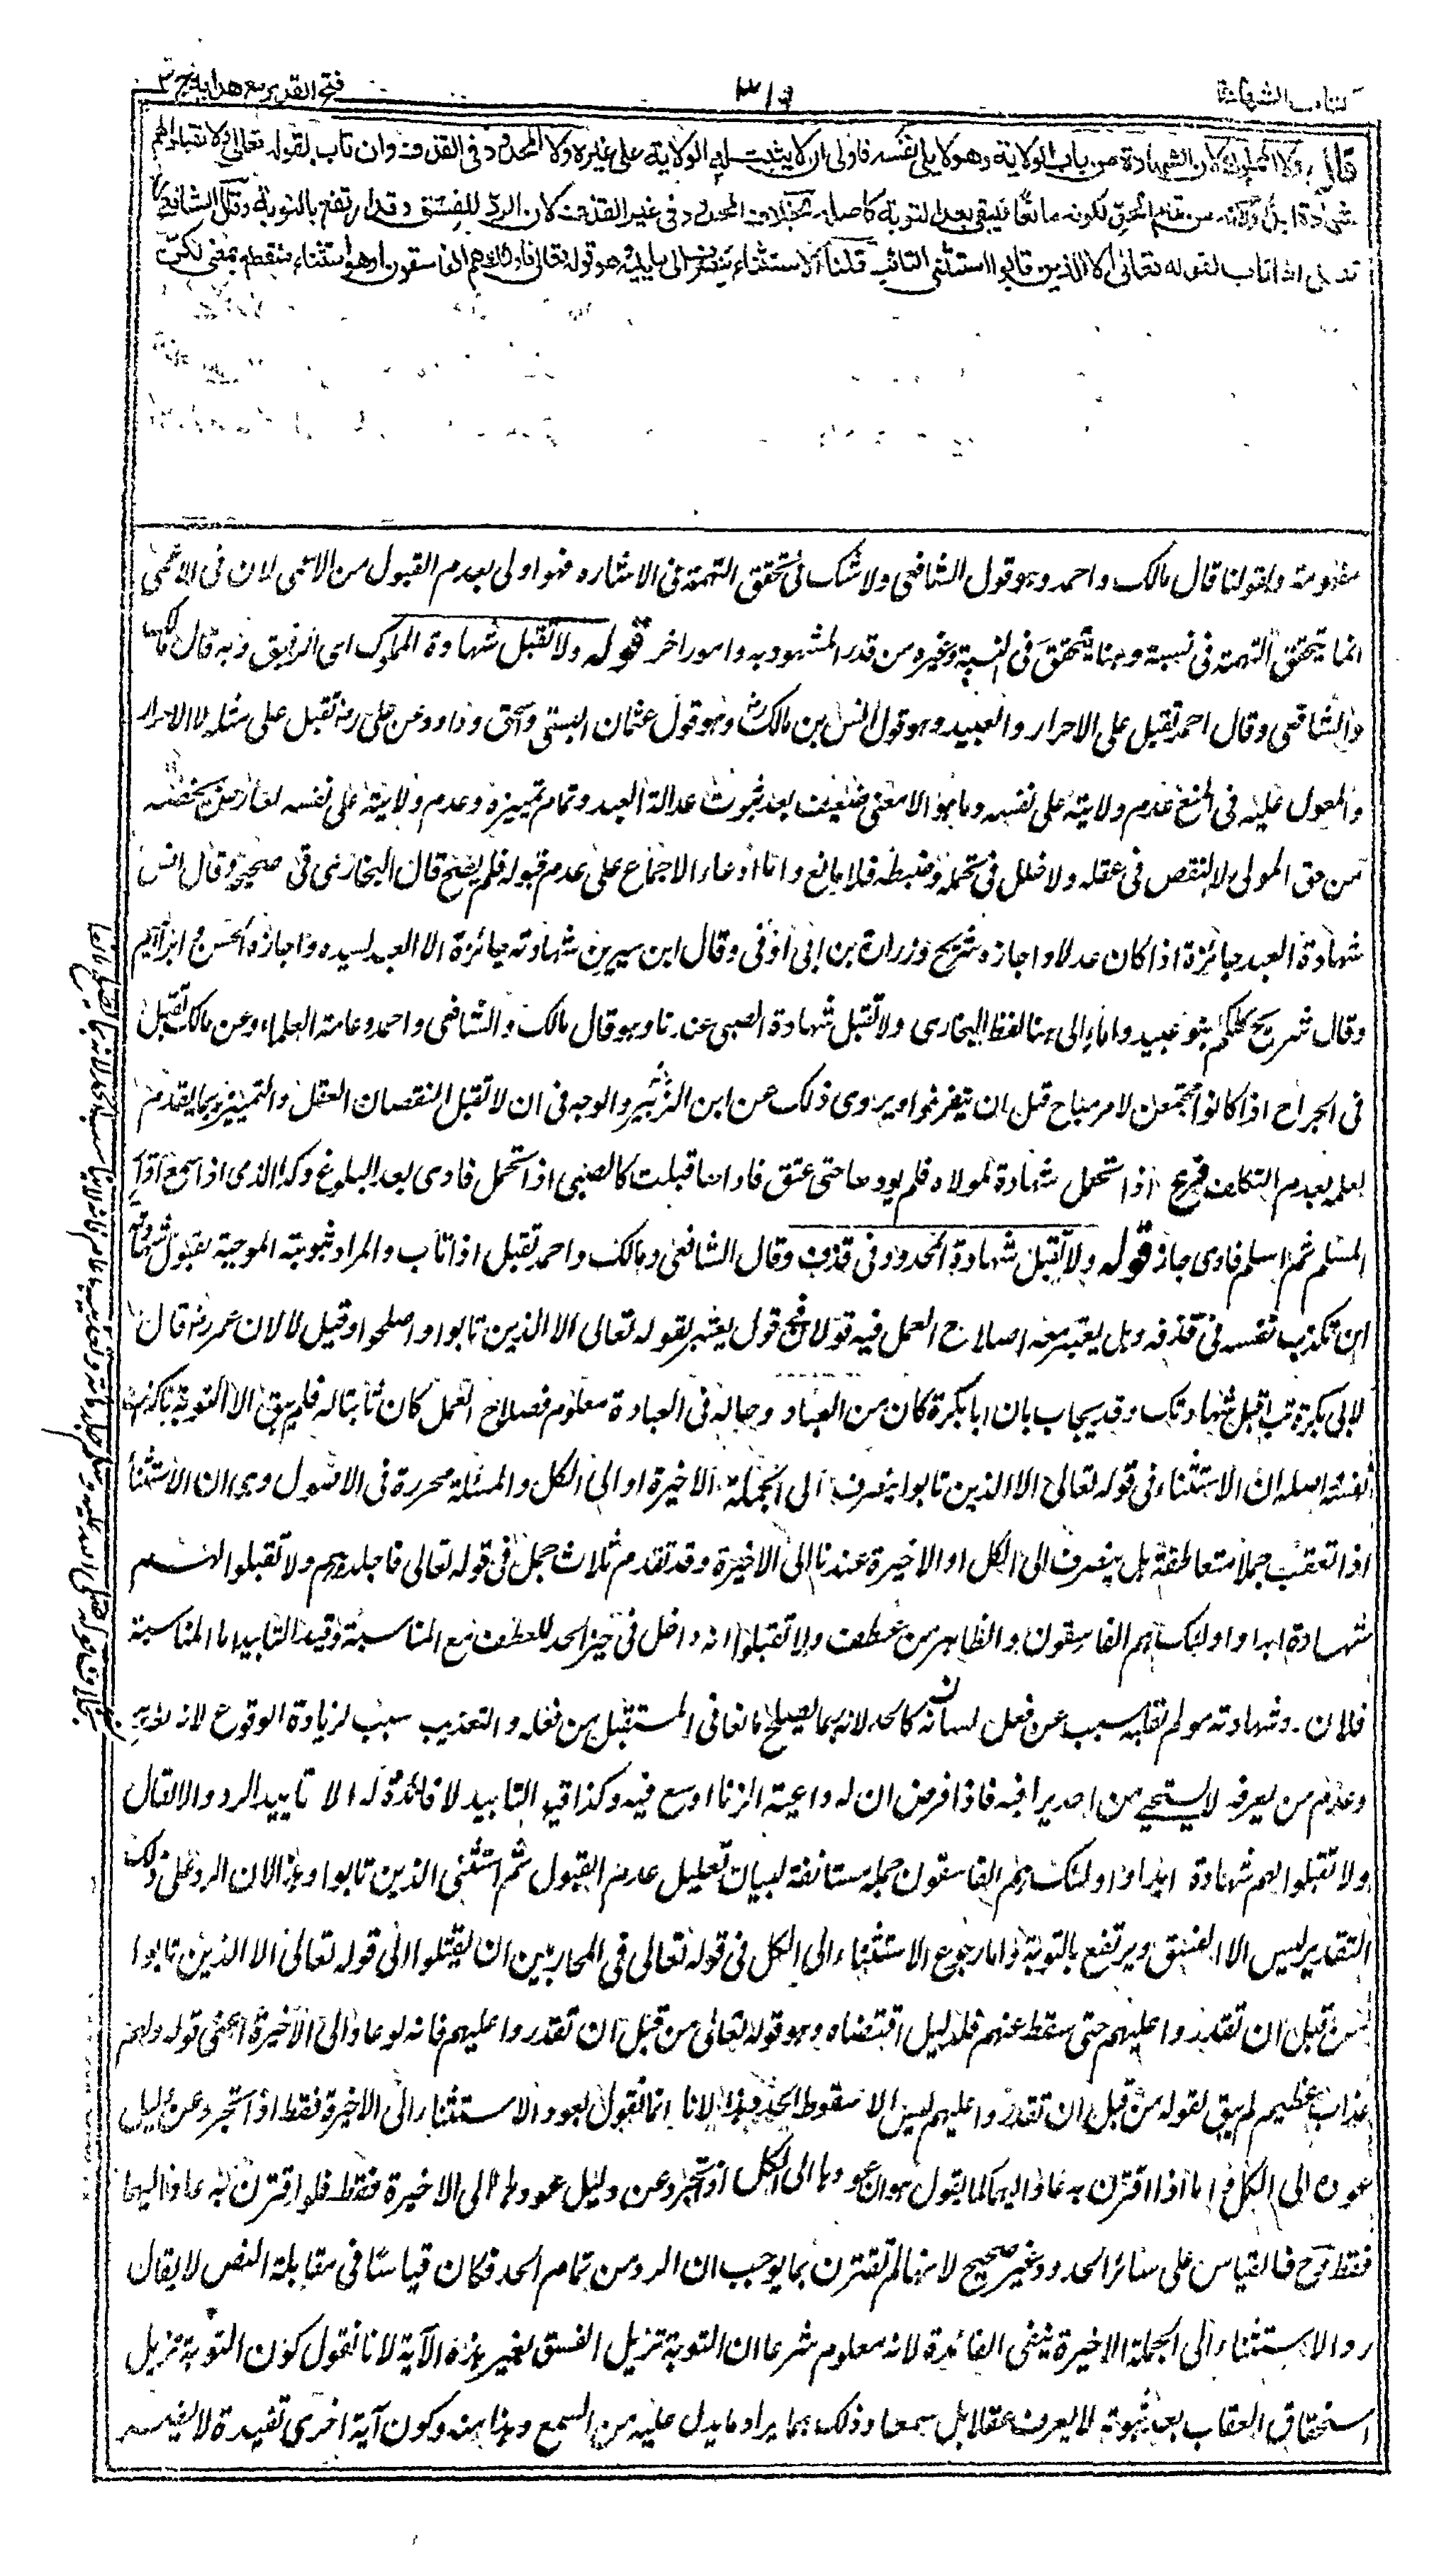 كتاب الشهادة
٣١٩
فتح القدير مع هداية ج ٣
قال ولا المملوك لان الشهادة من باب الولاية وهو لا يلي نفسه فاولى ان لا يثبت له الولاية على غيره ولا المحدود في القذف وان تاب لقوله تعالى ولا تقبلوا لهم
شهادة ابدا ولانه من تمام الحد لكونه مانعا فيبقى بعد التوبة كاصله بخلاف المحدود في غير القذف لان الرد للفسق وقد ارتفع بالتوبة وقال الشافعي
تقبل اذا تاب لقوله تعالى الا الذين تابوا استثنى التائب قلنا الاستثناء ينصرف الى ما يليه هو قوله تعالى فاولئك هم الفاسقون او هو استثناء منقطع بمعنى لكن
مفهومة وبقولنا قال مالك واحمد وهو قول الشافعي ولا شك في تحقق التهمة في الاشاره فهو اولى بعدم القبول من الاعمى لان في الاعمى
انما يتحقق التهمة في نسبته وهنا يتحقق في النسبة وغيره من قدر المشهود به وامور اخر قوله ولا تقبل شهادة المملوك اى الرقيق وبه قال مالك
والشافعي وقال احمد تقبل على الاحرار والعبيد وهو قول انس بن مالك وهو قول عثمان البستي واسحق وداود وعن علي رض تقبل على مثله لا الاحرار
والمعول عليه في المنع عدم ولايته على نفسه وما هو الا معنى ضعيف بعد ثبوت عدالة العبد وتمام تمييزه وعدم ولايته على نفسه لعارض يخصه
من حق المولى لا لنقص في عقله ولا خلل في تحمله وضبطه فلا مانع واما ادعاء الاجماع على عدم قبوله فلم يصح قال البخارى في صحيحه وقال انس
شهادة العبد جائزة اذا كان عدلا واجازه شريح وزرارة بن ابي اوفى وقال ابن سيرين شهادته جائزة الا العبد لسيده واجازه الحسن وابراهيم
وقال شريح كلكم بنو عبيد واماء الى هنا لفظ البخارى ولا تقبل شهادة الصبي عندنا وهو قال مالك والشافعي واحمد وعامة العلماء وعن مالك تقبل
في الجراح اذا كانوا مجتمعين لامر مباح قبل ان يتفرقوا ويروى ذلك عن ابن الزبير والوجه في ان لا تقبل النقصان العقل والتمييز وبما يقدم
لعلمه بعدم التكليف فرع اذا تحمل شهادة لمولاه فلم يودها حتى عتق فاداها قبلت كالصبي اذا تحمل فادى بعد البلوغ وكذا الذمى اذا سمع اقرار
المسلم ثم اسلم فادى جاز قوله ولا تقبل شهادة المحدود في قذف وقال الشافعي ومالك واحمد تقبل اذا تاب والمراد بتوبته الموجبة لقبول شهادته
ان تكذيب نفسه في قذفه وهل يعتبر معه اصلاح العمل فيه قولان في قول يعتبر لقوله تعالى الا الذين تابوا واصلحوا وقيل لا لان عمر رض قال
لابي بكرة تب اقبل شهادتك وقد يجاب بان ابا بكرة كان من العباد وحاله في العبادة معلوم فصلاح العمل كان ثابتا له فلم يبق الا التوبة باكذاب
نفسه اصله ان الاستثناء في قوله تعالى الا الذين تابوا ينصرف الى الجملة الاخيرة او الى الكل والمسئلة محررة في الاصول وهي ان الاستثناء
اذا تعقب جملا متعاطفة هل ينصرف الى الكل او الاخيرة عندنا الى الاخيرة وقد تقدم ثلاث جمل في قوله تعالى فاجلدوهم ولا تقبلوا لهم
شهادة ابدا واولئك هم الفاسقون والظاهر من عطف ولا تقبلوا انه داخل في حيز الحد للعطف مع المناسبة وقيد التابيد اما المناسبة
فلان رد شهادته مولم لقلبه سبب عن فعل لسانه كالحد لانه ربما يصلح مانعا في المستقبل من فعله والتعذيب سبب لزيادة الوقوع لانه
وعدم من يعرفه لا يستحيى من احد يراقبه فاذا فرض ان له داعية الزنا اوسع فيه وكذا قيد التابيد لا فائدة له الا تاييد الرد والا لقال
ولا تقبلوا لهم شهادة ابدا واولئك هم الفاسقون جملة مستانفة لبيان تعليل عدم القبول ثم استثنى الذين تابوا وهذا لان الرد على ذلك
التقدير ليس الا الفسق ويرتفع بالتوبة واما رجوع الاستثناء الى الكل في قوله تعالى في المحاربين ان يقتلوا الى قوله تعالى الا الذين تابوا
من قبل ان تقدروا عليهم حتى سقط عنهم فلدليل اقتضاه وهو قوله تعالى من قبل ان تقدروا عليهم فانه لو عاد الى الاخيرة اعنى قوله ولهم
عذاب عظيم لم يبق لقوله من قبل ان تقدروا عليهم ليس الا سقوط الحد وهذا لانا انما نقول بعود الاستثناء الى الاخيرة فقط اذا تجرد عن دليل
عوده الى الكل واما اذا اقترن به عاد اليها كما يقول هو ان عودها الى الكل اذا تجرد عن دليل عودها الى الاخيرة فقط فلو اقترن به عاد اليها
فقط وح فالقياس على سائر الحدود غير صحيح لانها لم تقترن بما يوجب ان الرد من تمام الحد فكان قياسا في مقابلة النص لا يقال
رد الاستثناء الى الجملة الاخيرة ينفى الفائدة لانه معلوم شرعا ان التوبة تزيل الفسق بغير هذه الآية لانا نقول كون التوبة تزيل
استحقاق العقاب بعد ثبوته لا يعرف عقلا بل سمعا وذلك بما يراد ما يدل عليه من السمع وهذا منه وكون آية اخرى تفيده لا يضر